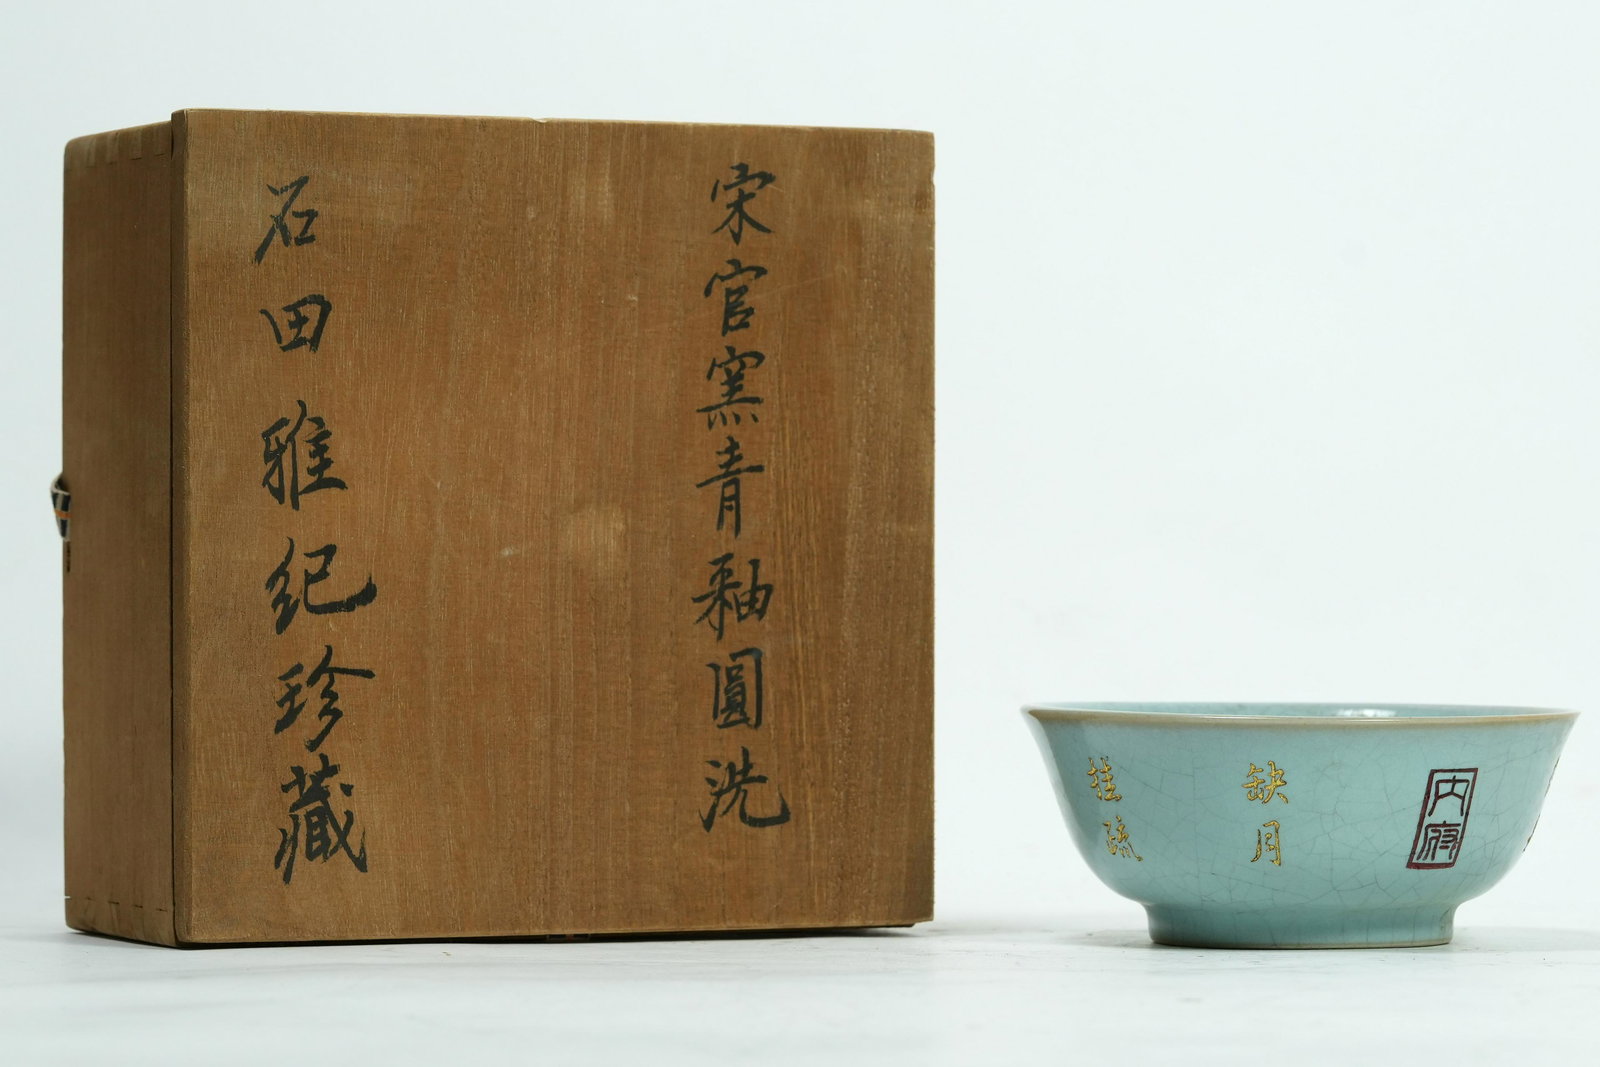 宋官窯青釉圓洗
石田雅紀珍藏
内府
缺月
挂疏